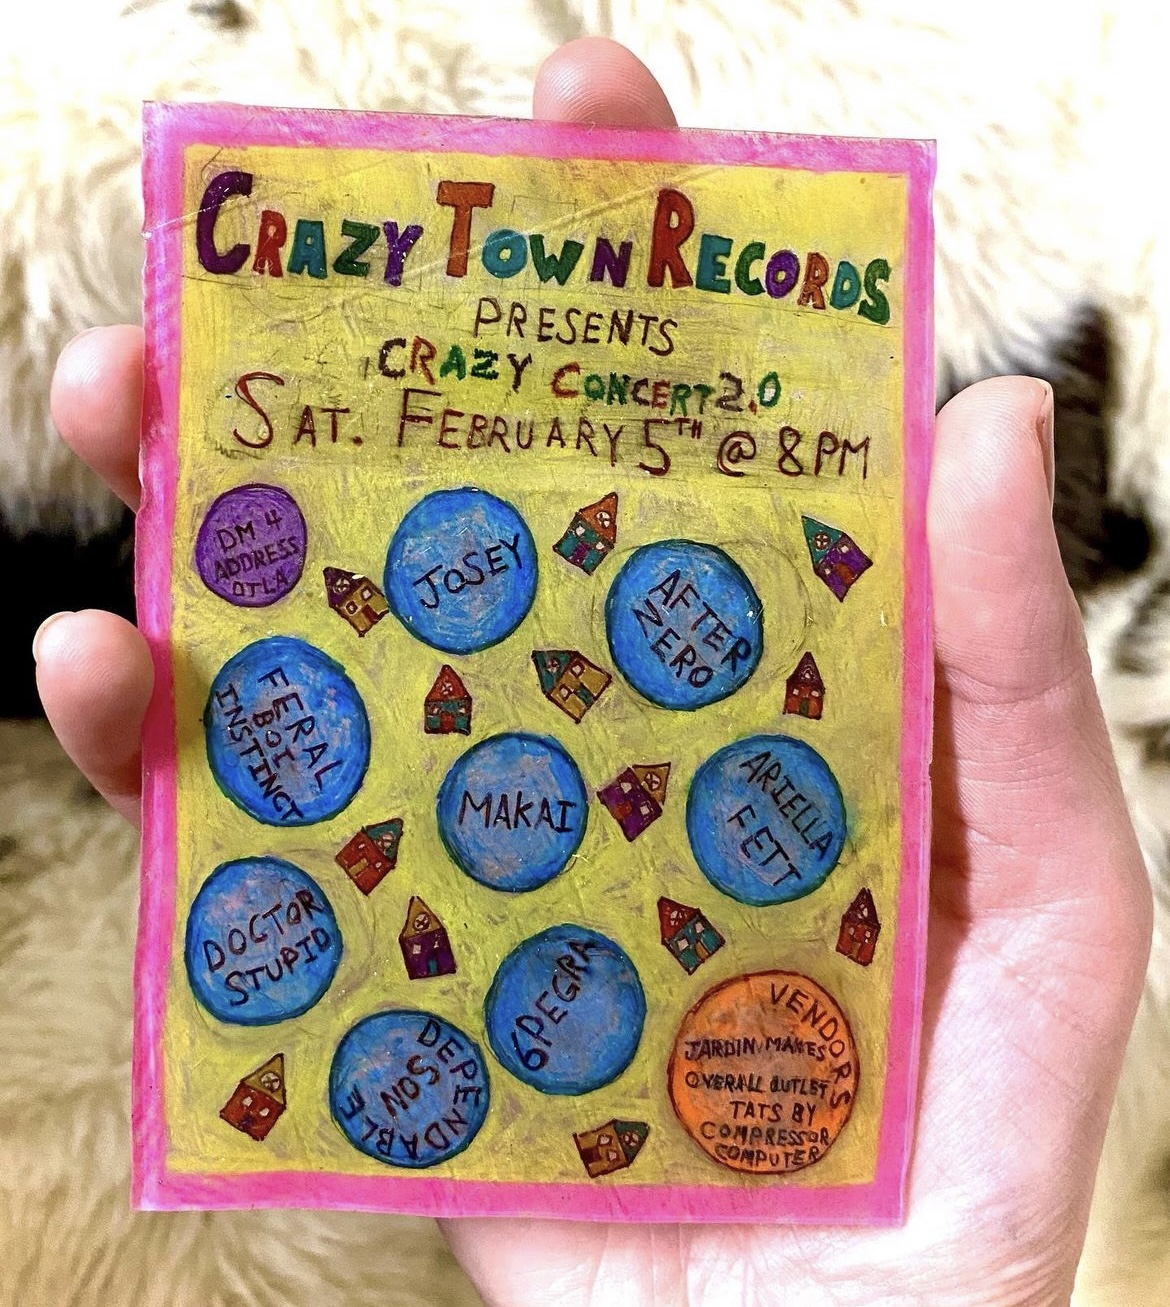 CRAZY TOWN RECORDS
PRESENTS
CRAZY CONCERT 2.0
SAT. FEBRUARY 5TH @ 8PM
DM 4
ADDRESS
DTLA
JOSEY
AFTER
ZERO
FERAL
BOI
INSTINCT
MAKAI
ARIELLA
FETT
DOCTOR
STUPID
6PEGRA
DEPENDABLE
SON
VENDORS
JARDIN MAKES
OVERALL OUTLET
TATS BY
COMPRESSOR
COMPUTER